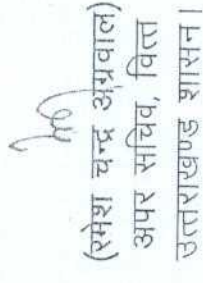 (रमेश चन्द्र अग्रवाल)
अपर सचिव, वित्त
उत्तराखण्ड शासन।